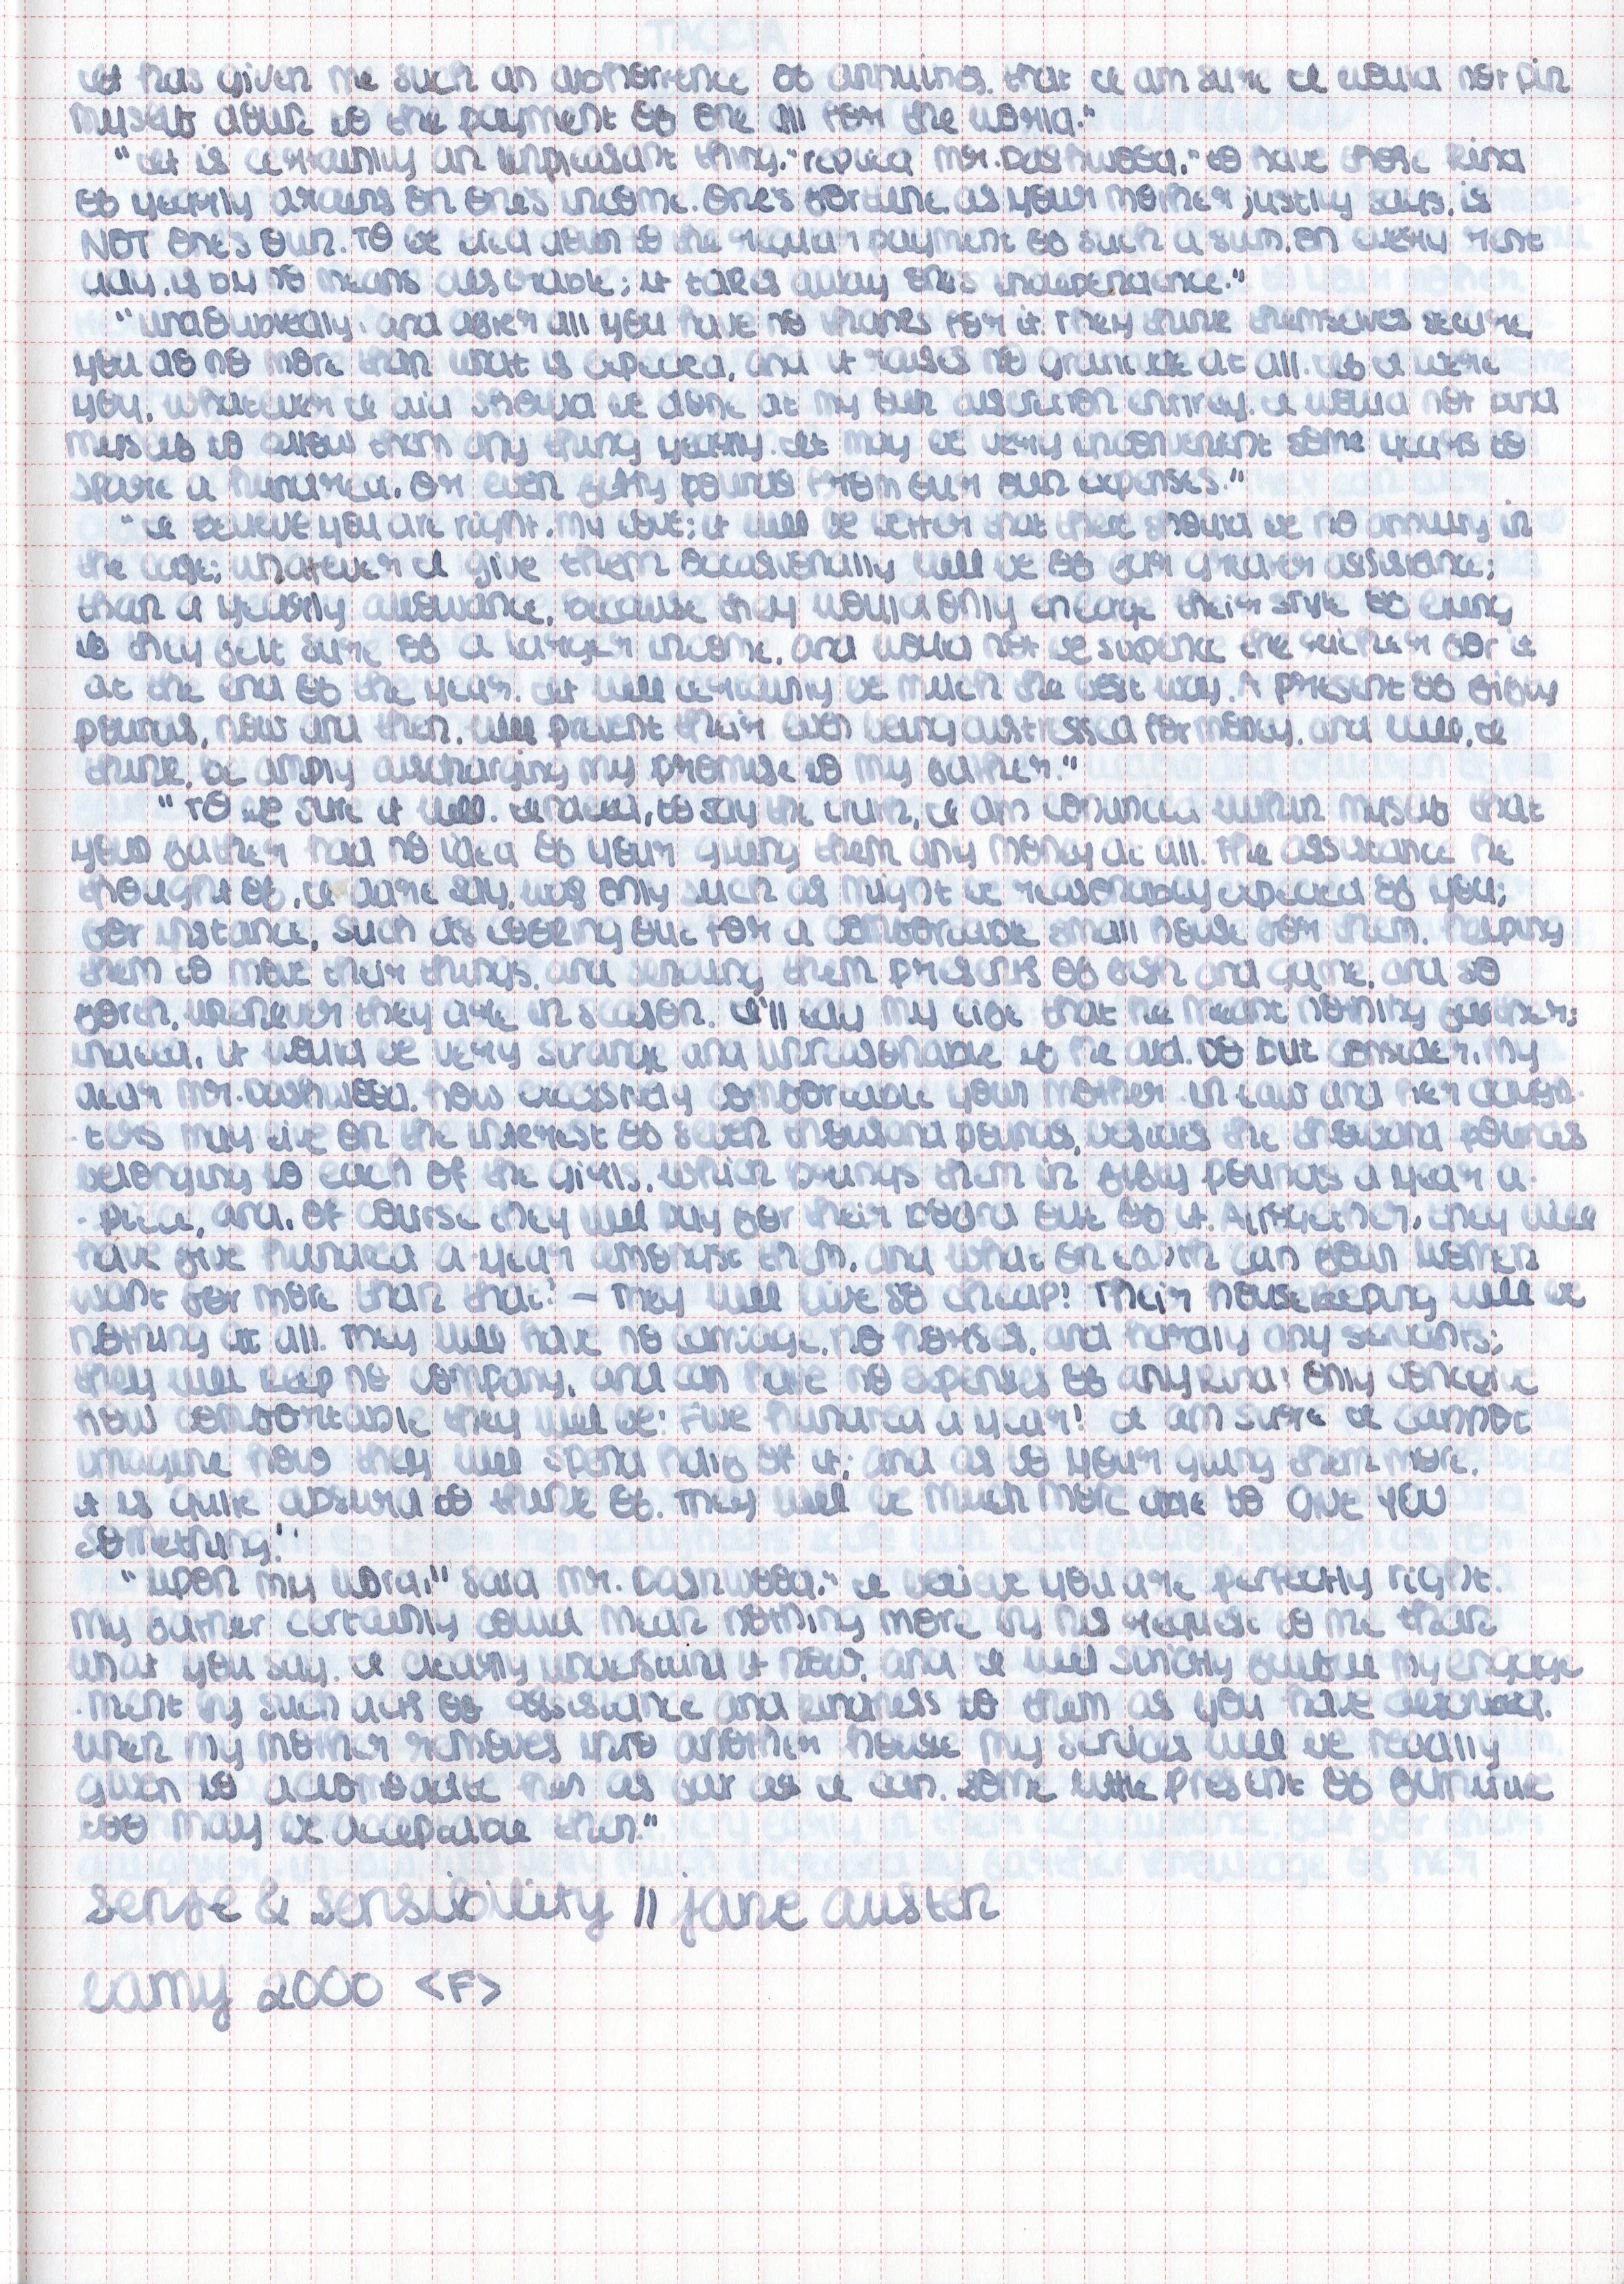 TACCIA
It has given me such an abhorrence of annuities, that I am sure I would not pin
myself down to the payment of one all for the world."
"It is certainly an unpleasant thing," replied Mr. Dashwood, "to have those kind
of yearly drains on one's income. One's fortune, as your mother justly says, is
NOT one's own. To be tied down to the regular payment of such a sum, on every rent
day, is by no means desirable; it takes away one's independence."
"Undoubtedly; and after all you have no thanks for it. They think themselves secure,
you do no more than what is expected, and it raises no gratitude at all. If I were
you, whatever I did should be done at my own discretion entirely. I would not bind
myself to allow them any thing yearly. It may be very inconvenient some years to
spare a hundred, or even fifty pounds from our own expenses."
"I believe you are right, my love; it will be better that there should be no annuity in
the case; whatever I give them occasionally will be of far greater assistance;
than a yearly allowance, because they would only enlarge their style of living
if they felt sure of a larger income, and would not be sixpence the richer for it
at the end of the year. It will certainly be much the best way. A present of fifty
pounds, now and then, will prevent their ever being distressed for money, and will, I
think, be amply discharging my promise to my father."
"To be sure it will. Indeed, to say the truth, I am convinced within myself that
your father had no idea of your giving them any money at all. The assistance he
thought of, I dare say, was only such as might be reasonably expected of you;
for instance, such as looking out for a comfortable small house for them, helping
them to move their things, and sending them presents of fish and game, and so
forth, whenever they are in season. I'll lay my life that he meant nothing farther;
indeed, it would be very strange and unreasonable if he did. Do but consider, my
dear Mr. Dashwood, how excessively comfortable your mother-in-law and her daugh-
-ters may live on the interest of seven thousand pounds, besides the thousand pounds
belonging to each of the girls, which brings them in fifty pounds a year a-
-piece, and, of course they will pay for their board out of it. Altogether, they will
have five hundred a-year amongst them, and what on earth can four women
want for more than that? — They will live so cheap! Their housekeeping will be
nothing at all. They will have no carriage, no horses, and hardly any servants;
they will keep no company, and can have no expenses of any kind! Only conceive
how comfortable they will be! Five hundred a year! I am sure I cannot
imagine how they will spend half of it; and as to your giving them more,
it is quite absurd to think of. They will be much more able to give YOU
something."
"Upon my word," said Mr. Dashwood, "I believe you are perfectly right.
My father certainly could mean nothing more by his request to me than
what you say. I clearly understand it now, and I will strictly fulfil my engage
-ment by such acts of assistance and kindness to them as you have described.
When my mother removes into another house my services will be readily
given to accomodate her as far as I can. Some little present of furniture
too may be acceptable then."
sense & sensibility || jane austen
lamy 2000 <F>